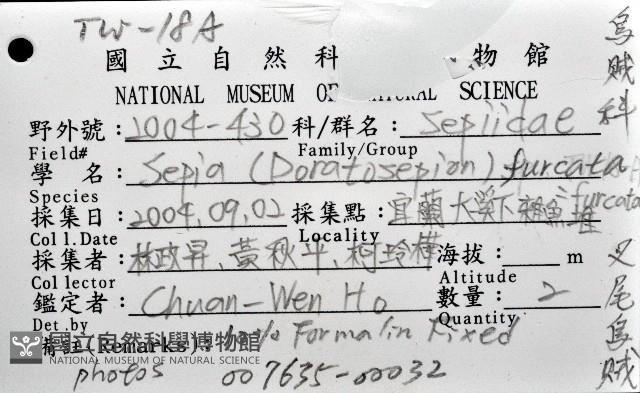 TW-18A
國立自然科 物館
NATIONAL MUSEUM OF NATURAL SCIENCE
野外號：2004-430 科/群名：Sepiidae
Field# Family/Group
學名：Sepia (Doratosepion) furcata
furcata
Species
採集日：2004.09.02 採集點：宜蘭大溪下雜魚堆
Coll.Date Locality
採集者：林政昇、黃秋平、柯玲樺 海拔： m
Collector Altitude
鑑定者：Chuan-Wen Ho 數量：2
Det.by Quantity
備註(Remarks)：10% Formalin Fixed
photos 007635-00032
烏賊科
叉尾烏賊
國立自然科學博物館
NATIONAL MUSEUM OF NATURAL SCIENCE